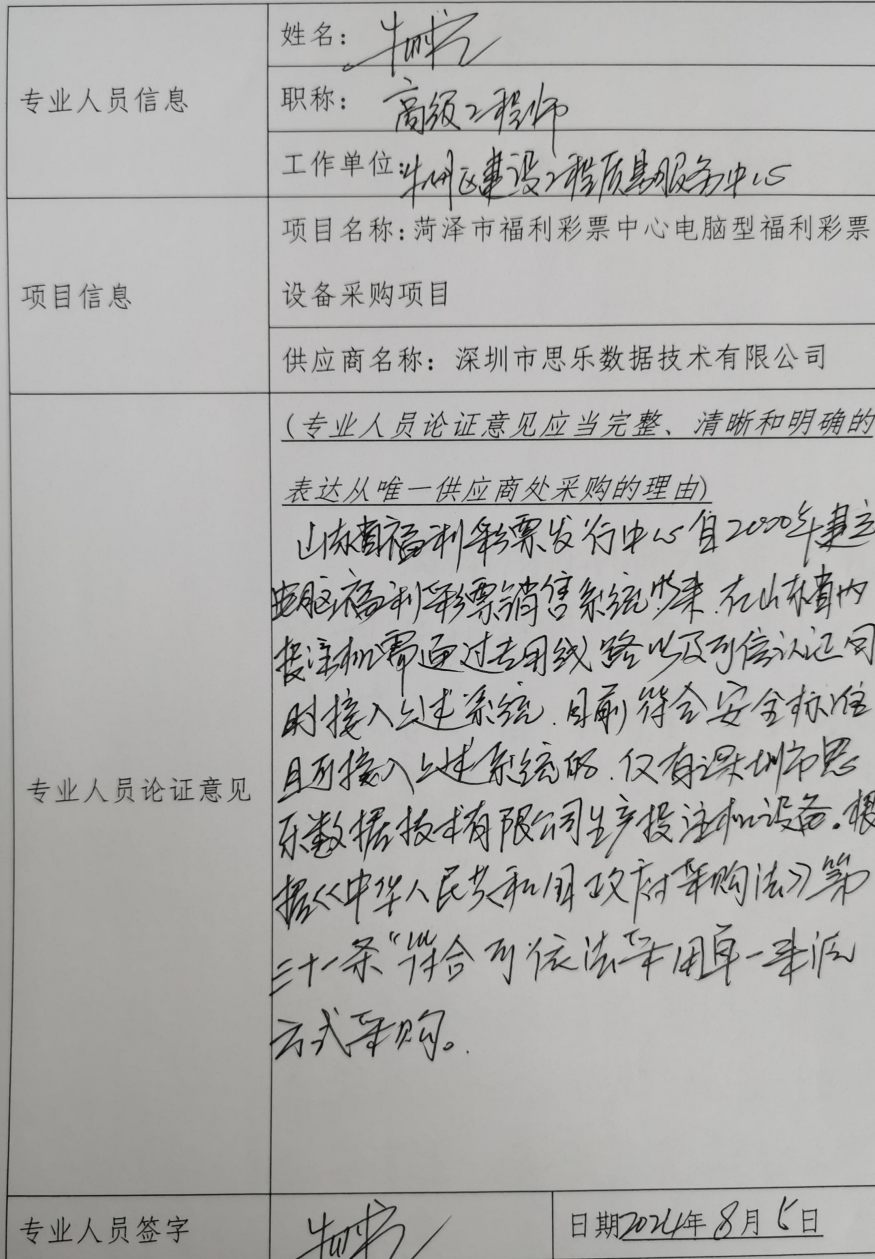 专业人员信息
姓名：
职称：高级工程师
工作单位：牡丹区建设工程质监服务中心
项目信息
项目名称：菏泽市福利彩票中心电脑型福利彩票
设备采购项目
供应商名称：深圳市思乐数据技术有限公司
专业人员论证意见
（专业人员论证意见应当完整、清晰和明确的
表达从唯一供应商处采购的理由）
山东省福利彩票发行中心自2000年建立
电脑福利彩票销售系统以来.在山东省内
投注机需通过专用线路以及可信认证同
时接入上述系统.目前符合安全标准
且可接入上述系统的.仅有深圳市思
乐数据技术有限公司生产投注机设备。根
据《中华人民共和国政府采购法》第
三十一条“符合可依法采用单一来源
方式采购。
专业人员签字
日期2024年8月5日